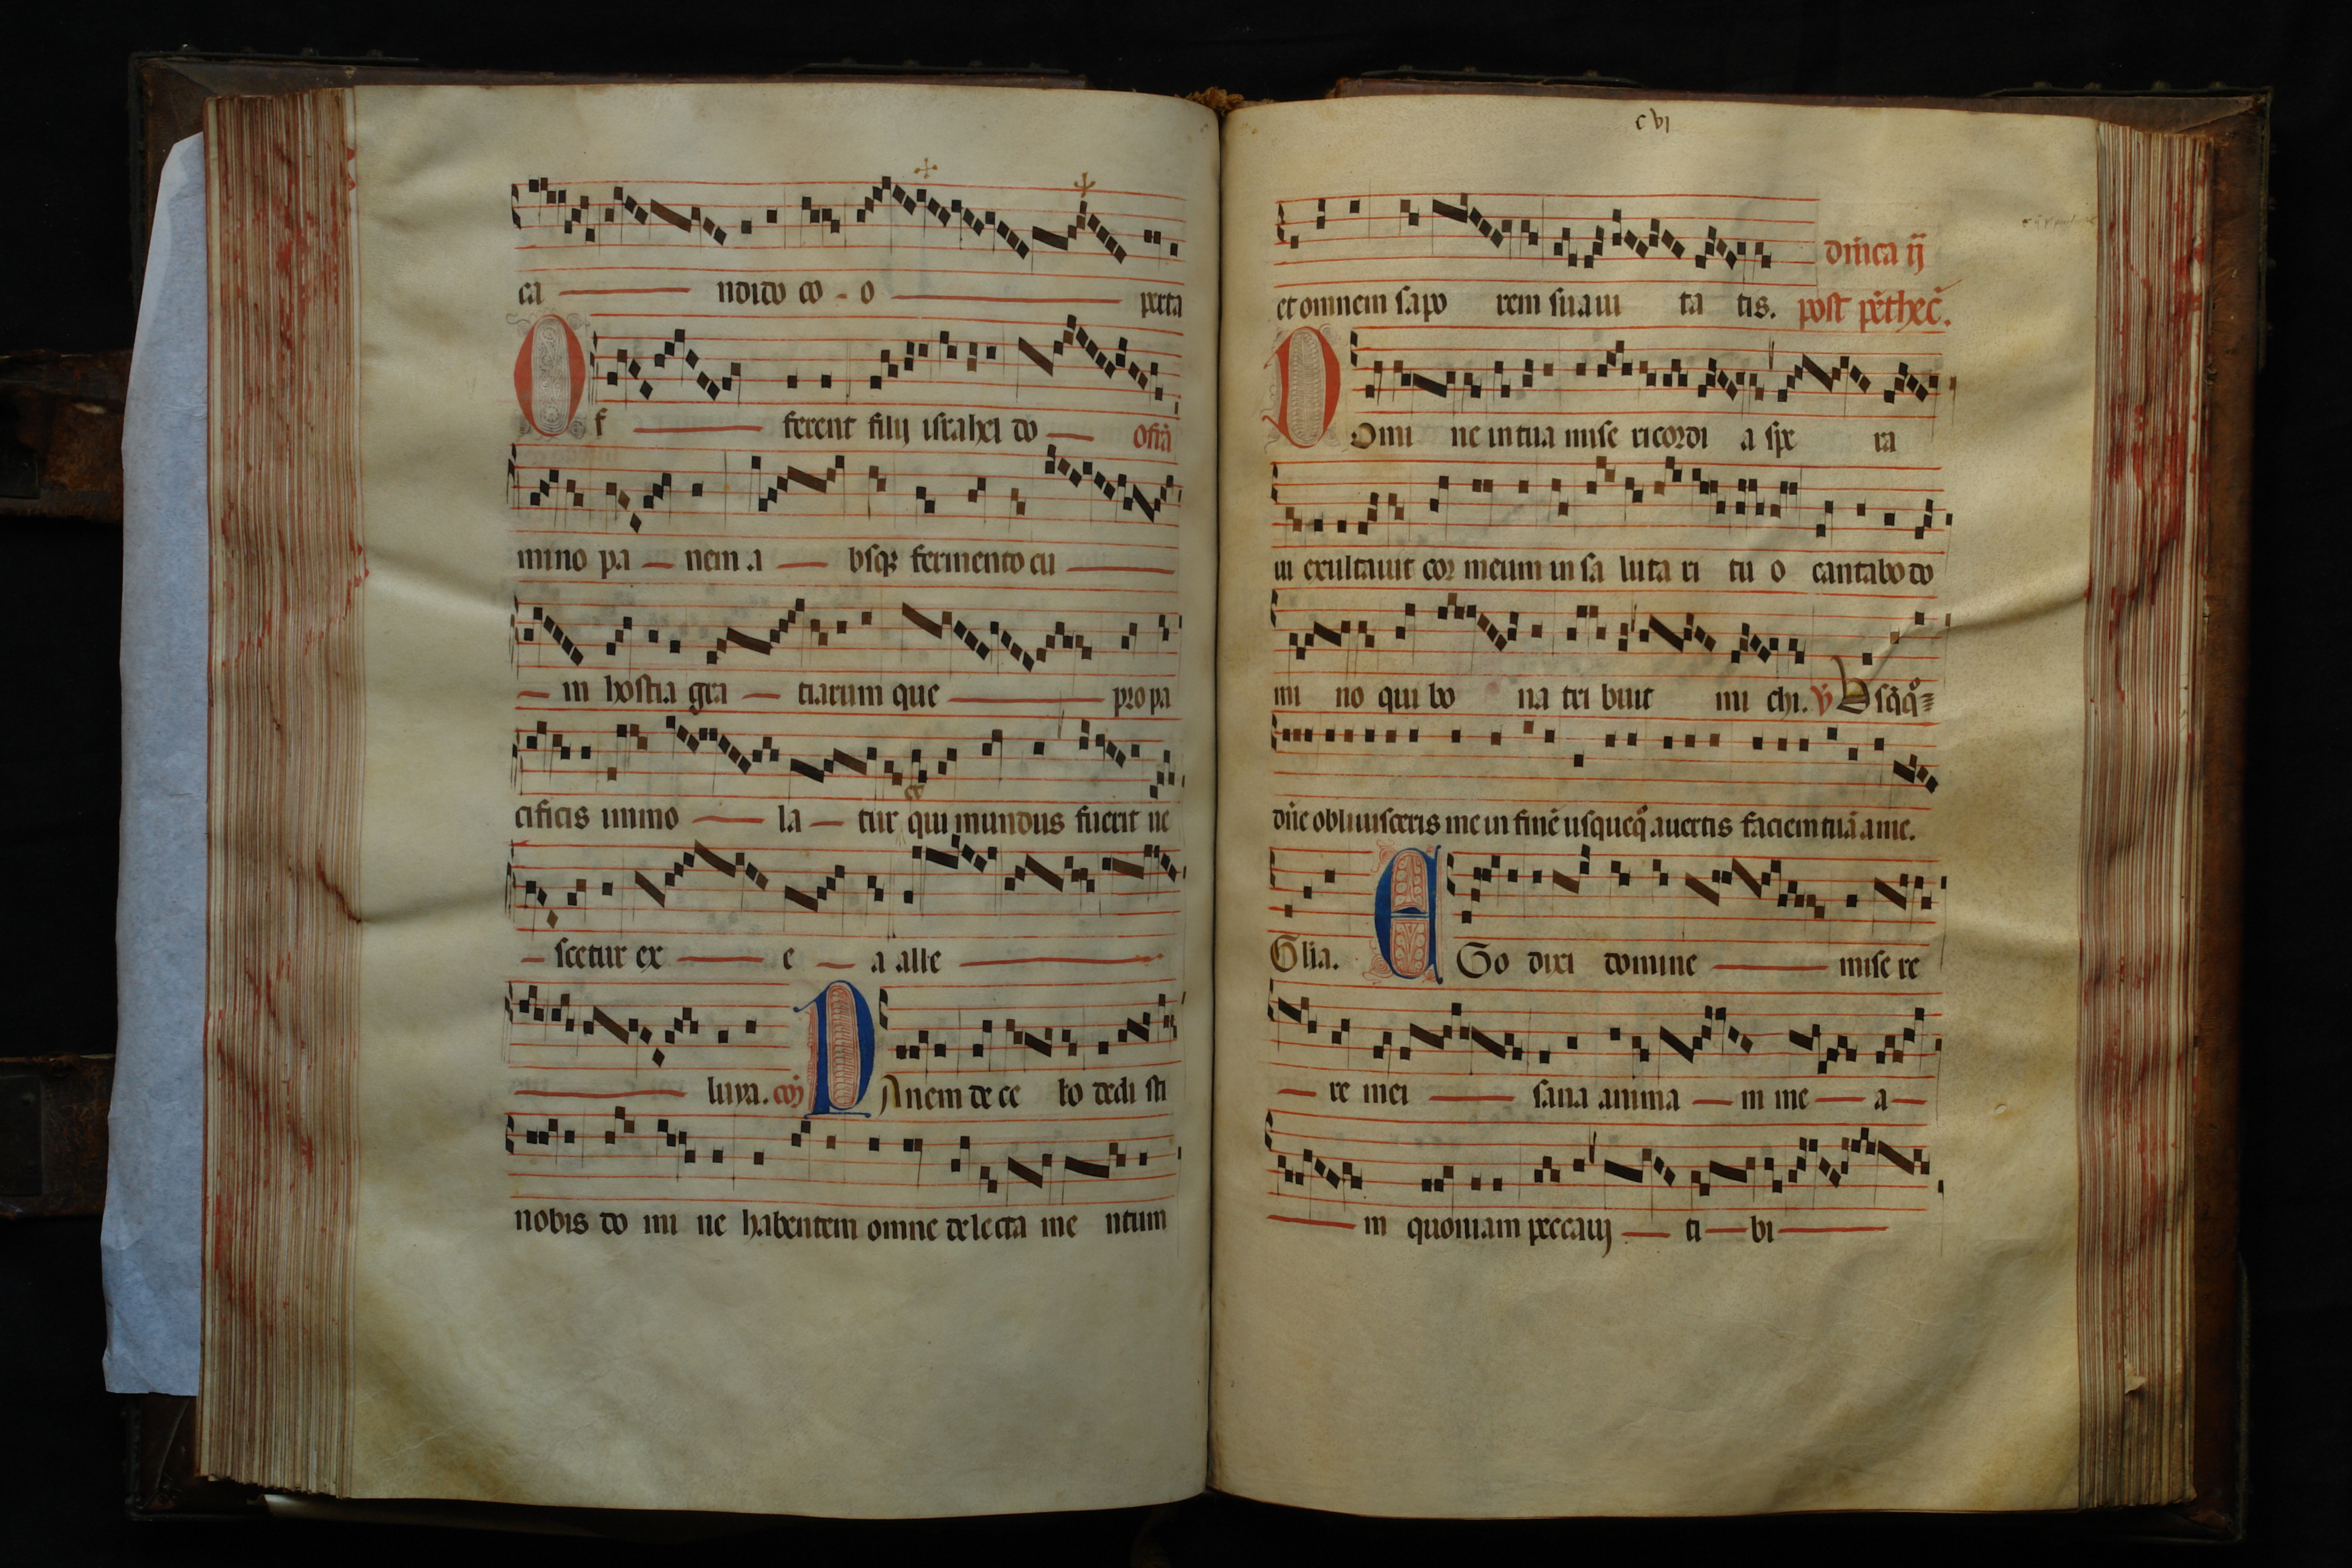 ca ndido co - o perta
Of ferent filij israhel do ofr̄a
mino pa nem a bsq; fermento cu
in hostia gra tiarum que pro pa
cificis immo la tur qui mundus fuerit ue
scetur ex e a alle
luya. com̄ PAnem de ce lo dedi sti
nobis do mi ne habentem omne delecta me ntum
cvi
dn̄ica ij
et omnem sapo rem suaui ta tis. post pēthec̄.
DOmi ne in tua mise ricordi a spe ra
ui exultauit cor meum in sa luta ri tu o cantabo do
mi no qui bo na tri buit mi chi. v̄ Vsq̄q̊
dn̄e obliuisceris me in finē usqueqů auertis faciem tuā a me.
Glia. EGo dixi domine mise re
re mei sana anima m me a
m quoniam peccauj ti bi